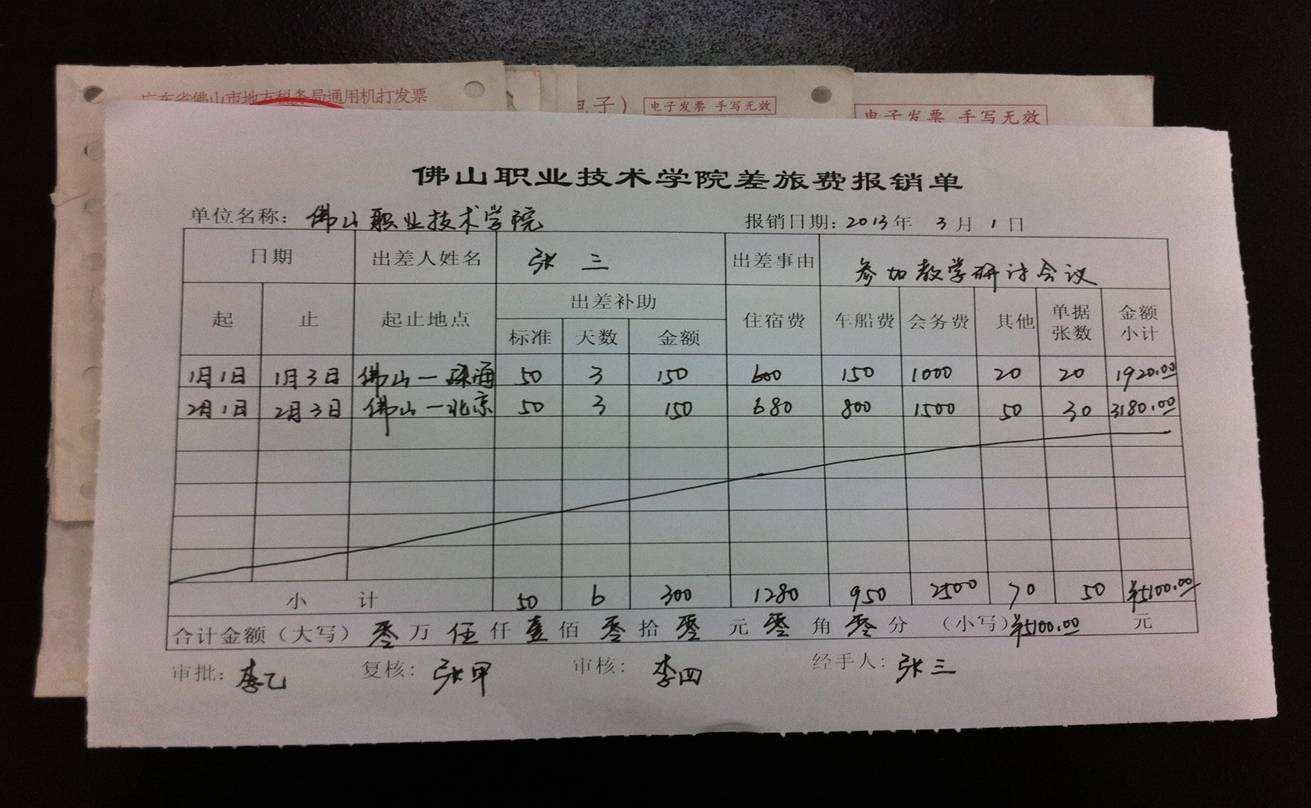 广东省佛山市地方税务局通用机打发票
电子）
电子发票 手写无效
电子发票 手写无效
佛山职业技术学院差旅费报销单
单位名称：佛山职业技术学院 报销日期：2013年 3月 1日
日期 出差人姓名 张三 出差事由 参加教学研讨会议
起 止 起止地点 出差补助 住宿费 车船费 会务费 其他 单据张数 金额小计
标准 天数 金额
1月1日 1月3日 佛山—珠海 50 3 150 600 150 1000 20 20 1920.00
2月1日 2月3日 佛山—北京 50 3 150 680 800 1500 50 30 3180.00
小 计 50 6 300 1280 950 2500 70 50 ¥5100.00
合计金额（大写） 零万伍仟壹佰零拾零元零角零分 （小写）¥5100.00 元
审批：李乙 复核：张甲 审核：李四 经手人：张三